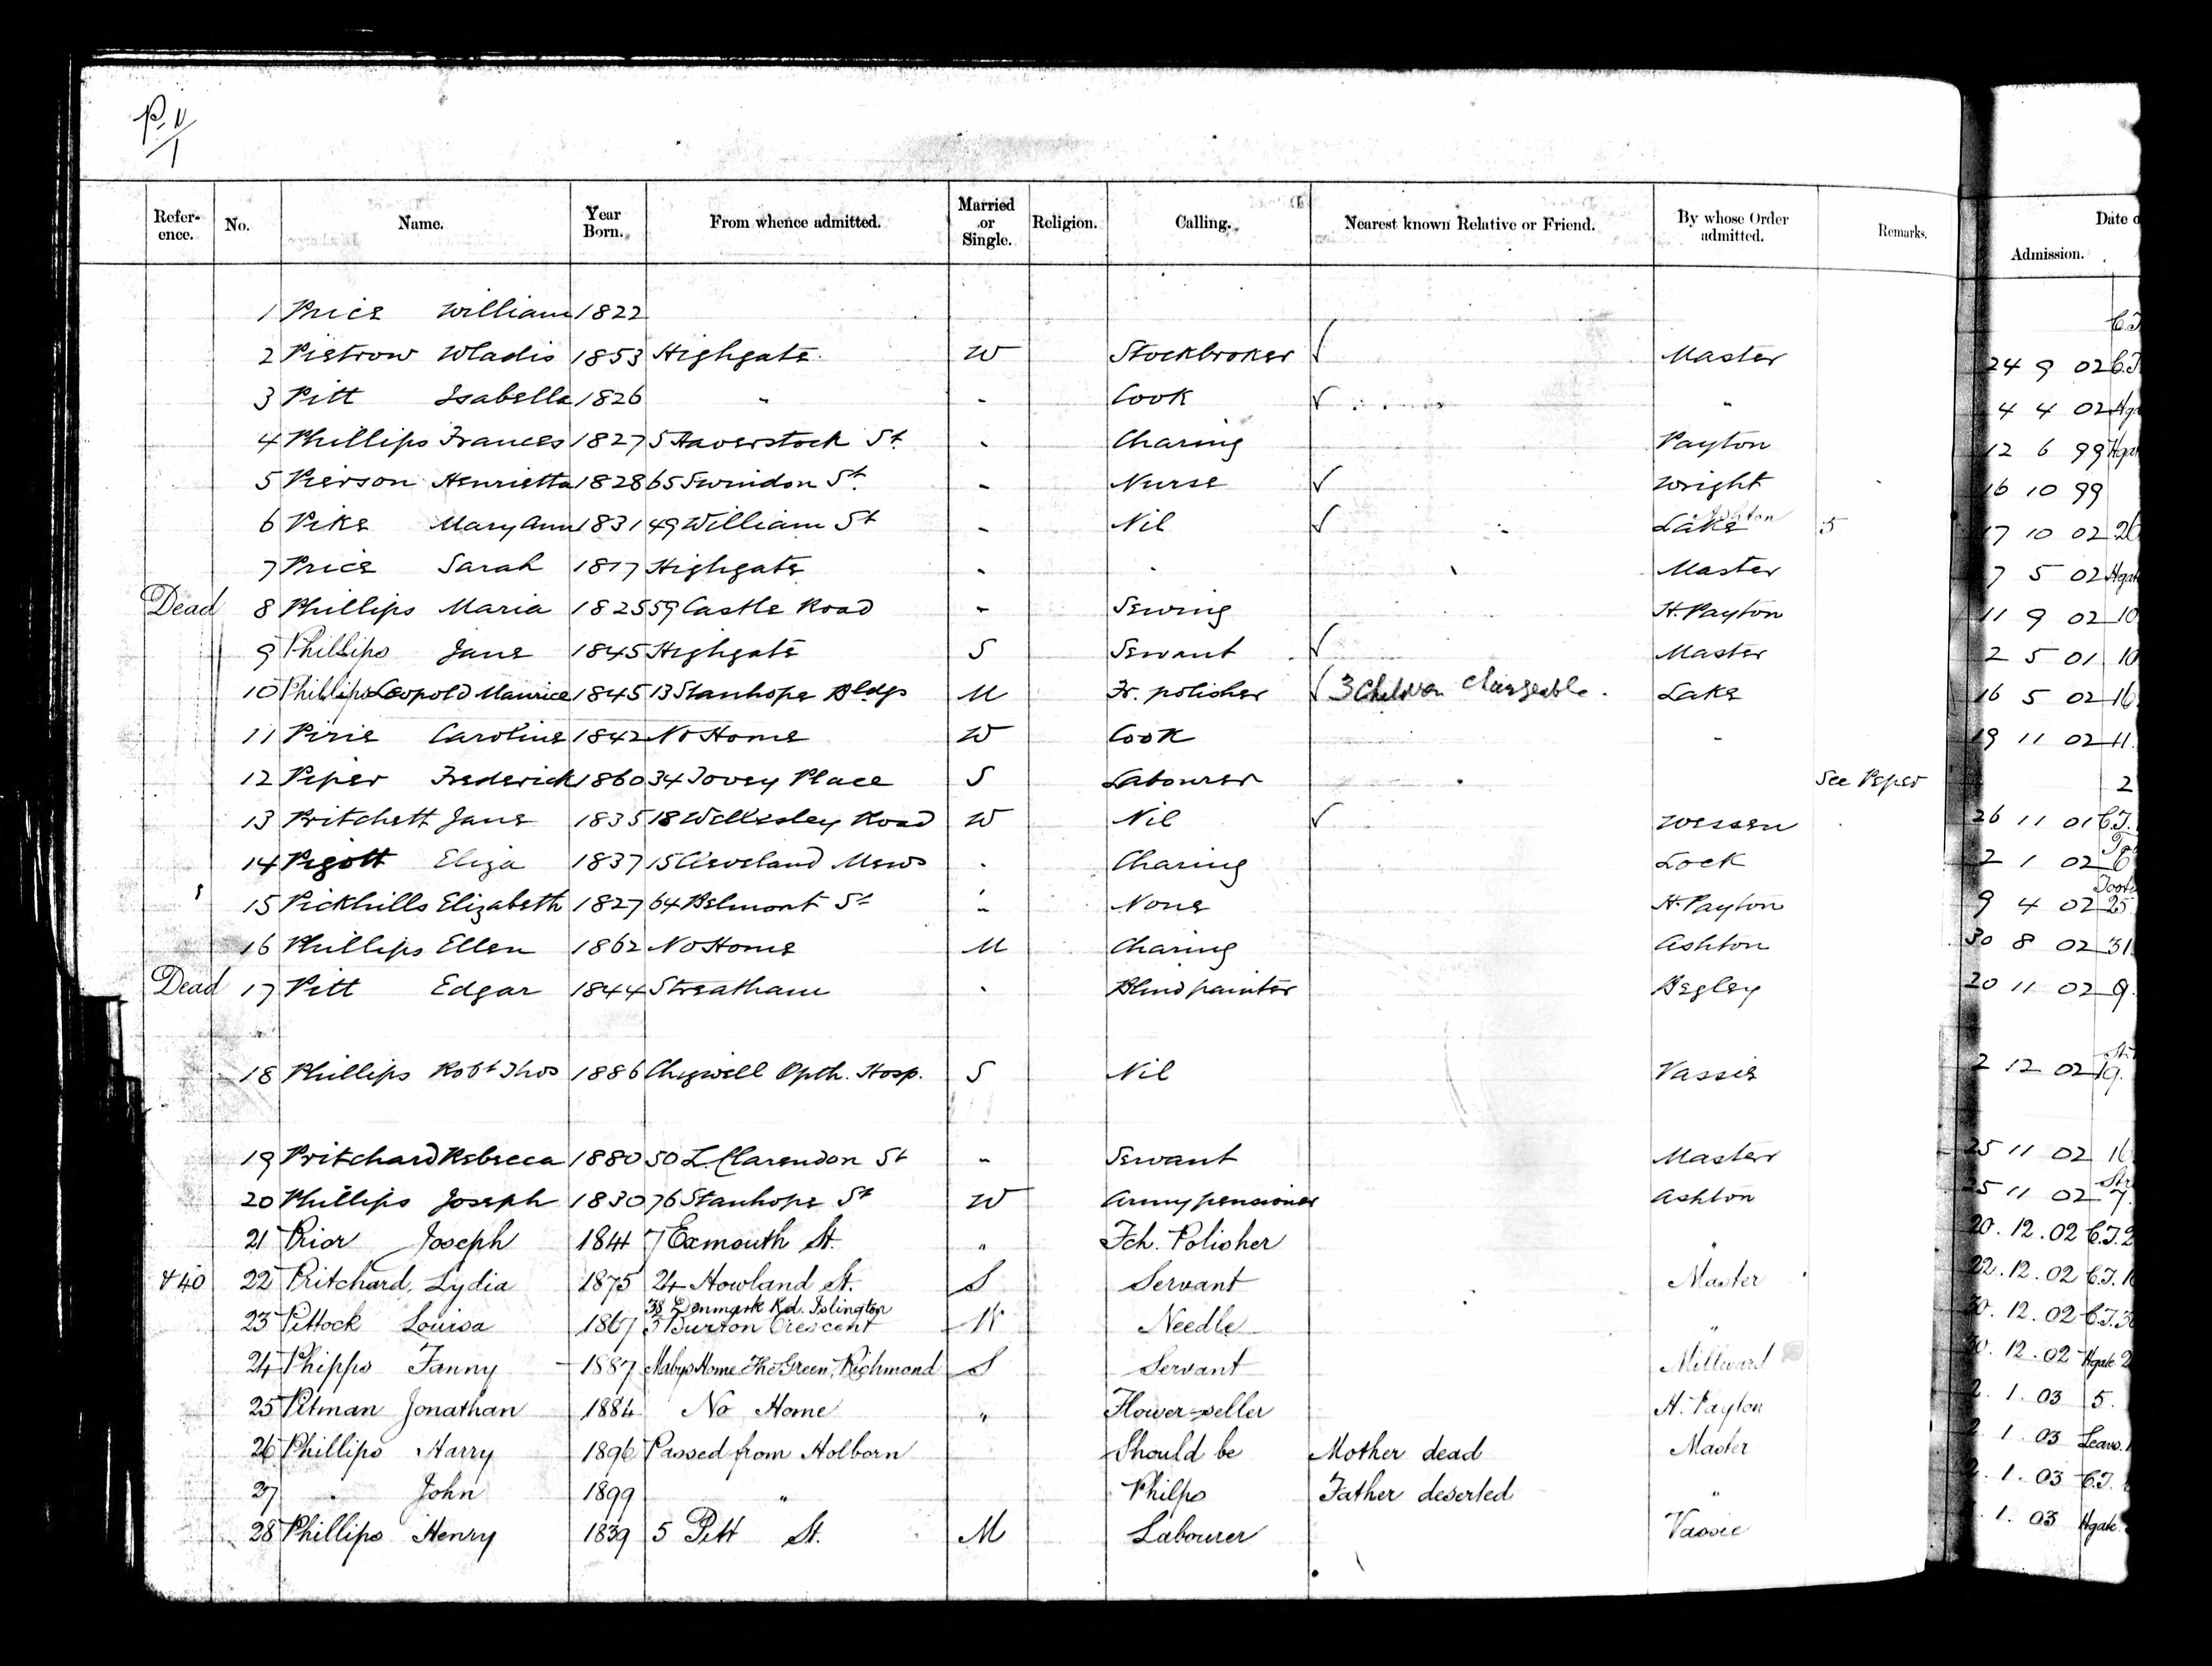 P. 11
1
Refer-ence. No. Name. Year Born. From whence admitted. Married or Single. Religion. Calling. Nearest known Relative or Friend. By whose Order admitted. Remarks. Admission. Date o
1 Price William 1822
2 Pietrow Wladis 1853 Highgate W Stockbroker ✓ Master 24 9 02 C.T.
3 Pitt Isabella 1826 " - Cook ✓ " 4 4 02 Hga
4 Phillips Frances 1827 5 Haverstock St - Charing Payton 12 6 99 Hgat
5 Pierson Henrietta 1828 65 Swindon St - Nurse ✓ Wright 16 10 99
6 Pike Mary Ann 1831 49 William St - Nil ✓ Lake Ashton 5 17 10 02 26
7 Price Sarah 1817 Highgate - - Master 7 5 02 Hgate
Dead 8 Phillips Maria 1825 59 Castle Road - Sewing H. Payton 11 9 02 10
9 Phillips Jane 1845 Highgate S Servant ✓ Master 2 5 01 10
10 Phillips Leopold Maurice 1845 13 Stanhope Bldgs M Fr. polisher ✓ 3 Children Chargeable. Lake 16 5 02 16
11 Pirie Caroline 1842 No Home W Cook - 19 11 02 11.
12 Piper Frederick 1860 34 Tovey Place S Labourer See Peper 2
13 Pritchett Jane 1835 18 Wellesley Road W Nil ✓ Wessen 26 11 01 C.T.
14 Pigott Eliza 1837 15 Cleveland Mews - Charing Lock 2 1 02 6
15 Pickhills Elizabeth 1827 64 Belmont St - None H. Payton 9 4 02 25
16 Phillips Ellen 1862 No Home M Charing Ashton 30 8 02 31.
Dead 17 Pitt Edgar 1844 Streatham - Blind painter Begley 20 11 02 9.
18 Phillips Robt Thos 1886 Chigwell Opth. Hosp. S Nil Vassie 2 12 02 19.
19 Pritchard Rebecca 1880 50 L. Clarendon St - Servant Master 25 11 02 16
20 Phillips Joseph 1830 76 Stanhope St W Army pensioner Ashton 25 11 02 7.
21 Prior Joseph 1841 7 Exmouth St. " Fch. Polisher " 20. 12. 02 C.T. 2
+40 22 Pritchard, Lydia 1875 24 Howland St. S Servant Master 22. 12. 02 C.T. 1
38 Denmark Rd. Islington
23 Pittock Louisa 1867 3 Burton Crescent W Needle " 30. 12. 02 C.T. 3
24 Phipps Fanny 1887 Mabys Home The Green, Richmond S Servant Millward 30. 12. 02 Hgate 2
25 Pitman Jonathan 1884 No Home " Flower-seller H. Payton 2. 1. 03 5.
26 Phillips Harry 1896 Passed from Holborn Should be Mother dead Master 2. 1. 03 Leav.
27 " John 1899 " Philps Father deserted " 2. 1. 03 C.T.
28 Phillips Henry 1839 5 Pitt St. M Labourer Vassie 1. 03 Hgate